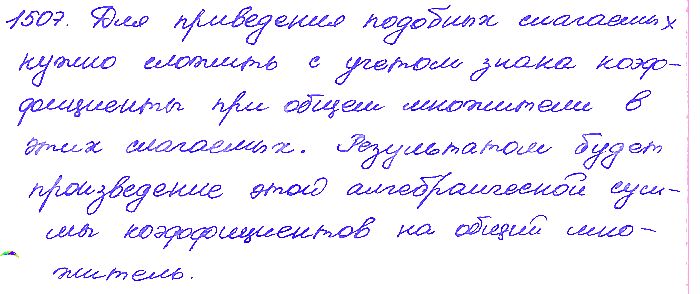 1507. Для приведения подобных слагаемых
нужно сложить с учетом знака коэф-
фициенты при общем множители в
этих слагаемых. Результатом будет
произведение этой алгебраической сум-
мы коэффициентов на общий мно-
житель.